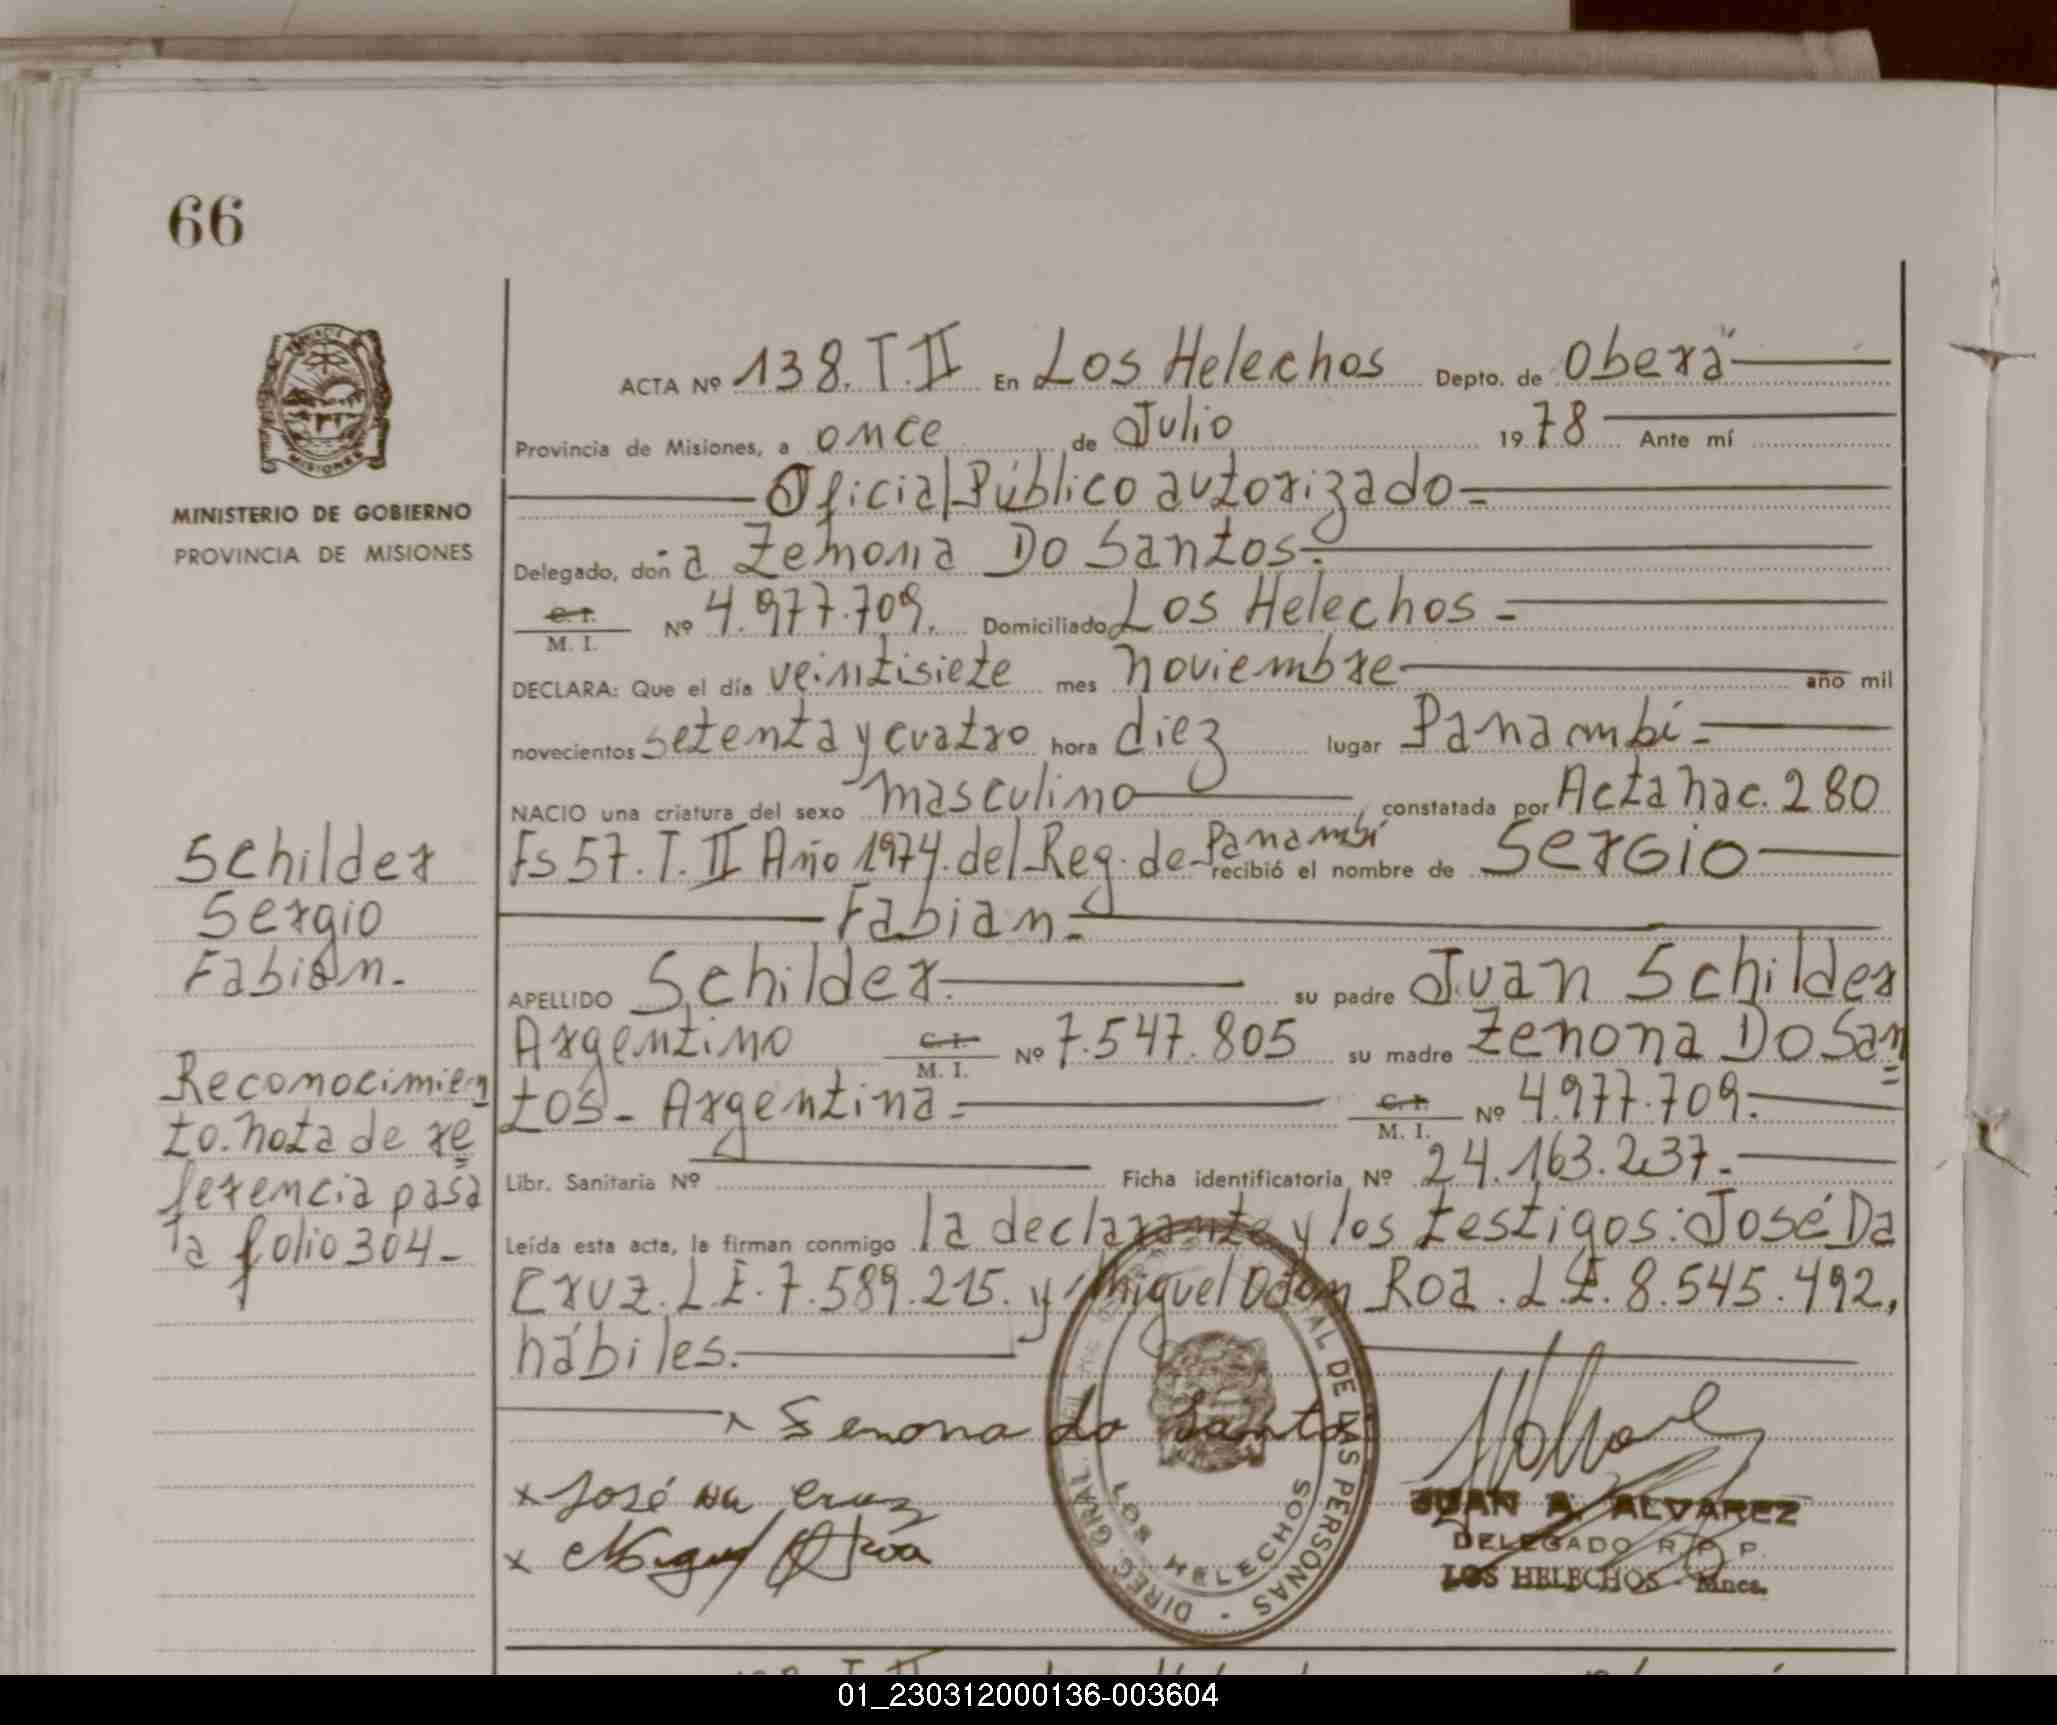 66
MINISTERIO DE GOBIERNO
PROVINCIA DE MISIONES
ACTA Nº 138. T. II En Los Helechos Depto. de Oberá
Provincia de Misiones, a once de Julio 1978 Ante mí
Oficial Público autorizado
Delegado, doña Zenona Do Santos.
C. I.
M. I. Nº 4.977.709. Domiciliado Los Helechos
DECLARA: Que el día veintisiete mes noviembre año mil
novecientos setenta y cuatro hora diez lugar Panambí
NACIO una criatura del sexo masculino constatada por Acta nac. 280
Fs 57. T. II Año 1974. del Reg. de Panambí recibió el nombre de Sergio
Fabian
APELLIDO Schilder. su padre Juan Schilder
Argentino C. I. M. I. Nº 7.547.805 su madre Zenona Do San
tos - Argentina C. I. M. I. Nº 4.977.709.
Libr. Sanitaria Nº Ficha identificatoria Nº 24.163.237.
Leída esta acta, la firman conmigo la declarante y los testigos: José Da
Cruz. L.E. 7.589.215. y Miguel Roa. L.E. 8.545.492,
hábiles.
Schilder
Sergio
Fabián.
Reconocimien
to. nota de re
ferencia pasa
a folio 304
Senona do Santos
x José da Cruz
x Miguel Roa
DIREC. GRAL. DE LAS PERSONAS
LOS HELECHOS
JUAN A. ALVAREZ
DELEGADO R. P. P.
LOS HELECHOS - Mnes.
01_230312000136-003604